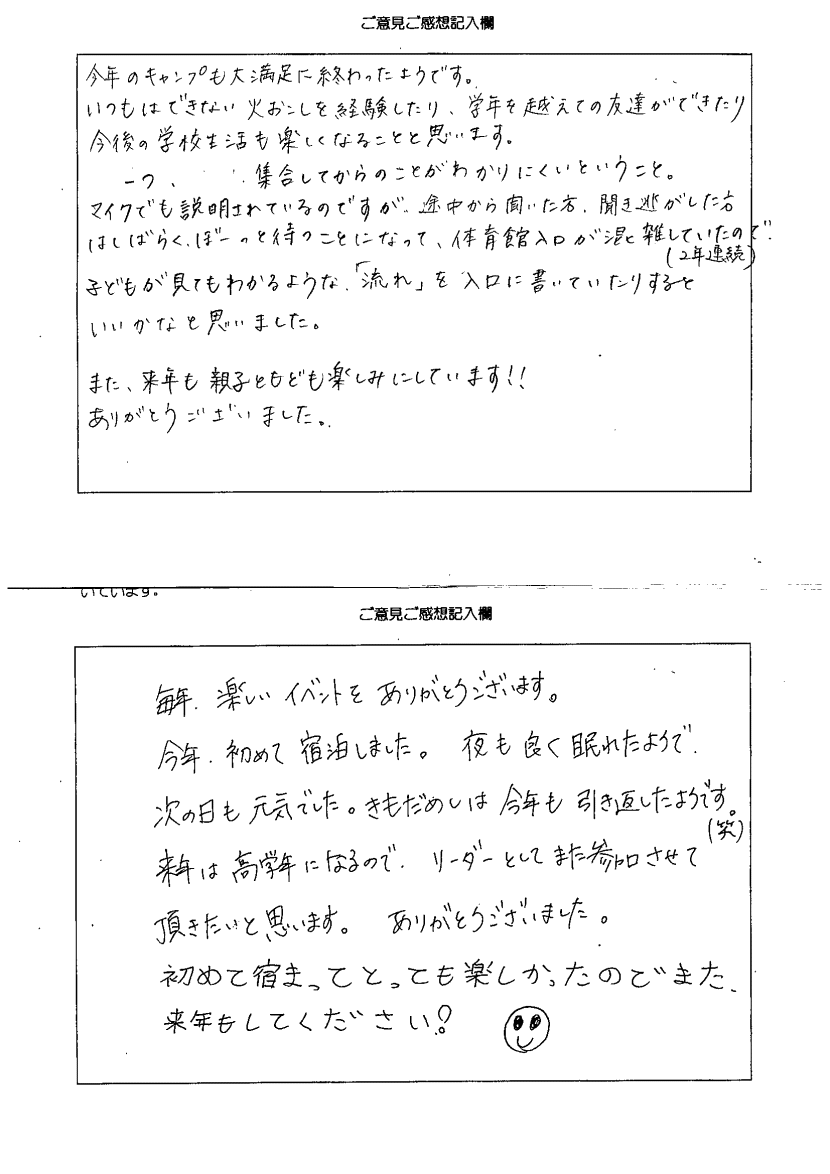 ご意見ご感想記入欄
今年のキャンプも大満足に終わったようです。
いつもはできない火おこしを経験したり、学年を越えての友達ができたり
今後の学校生活も楽しくなることと思います。
一つ、集合してからのことがわかりにくいということ。
マイクでも説明されているのですが、途中から聞いた方、聞き逃がした方
はしばらく、ぼーっと待つことになって、体育館入口が混雑していたので、
(2年連続)
子どもが見てもわかるような、「流れ」を入口に書いていたりすると
いいかなと思いました。
また、来年も親子ともども楽しみにしています!!
ありがとうございました。
いています。
ご意見ご感想記入欄
毎年、楽しいイベントをありがとうございます。
今年、初めて宿泊しました。夜も良く眠れたようで、
次の日も元気でした。きもだめしは今年も引き返したようです。
(笑)
来年は高学年になるので、リーダーとしてまた参加させて
頂きたいと思います。ありがとうございました。
初めて宿まってとっても楽しかったのでまた、
来年もしてください!